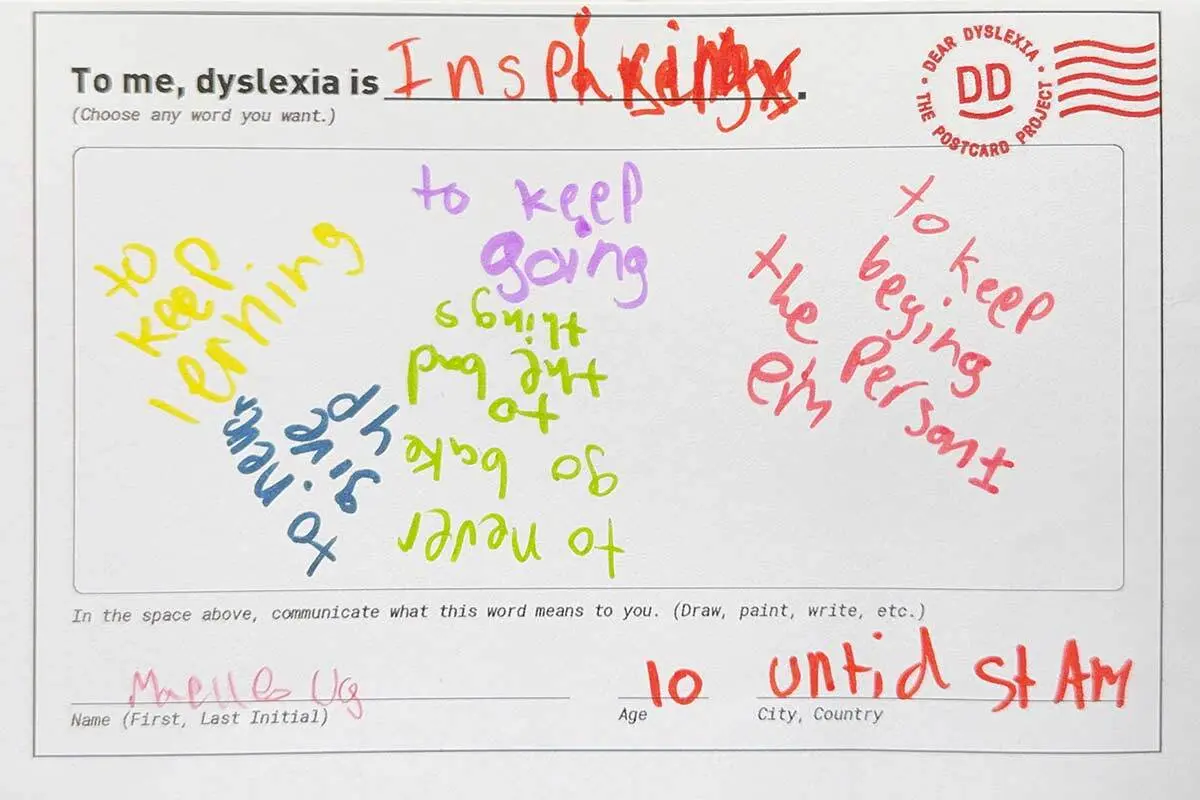 To me, dyslexia is Inspiring.
(Choose any word you want.)
DEAR DYSLEXIA • THE POSTCARD PROJECT •
DD
to
keep
lerning
to keep
going
to keep
beging
the Persant
eim
to never
give
up
to never
go bake
to
the bad
things
In the space above, communicate what this word means to you. (Draw, paint, write, etc.)
10
untid St AM
Name (First, Last Initial)
Age
City, Country